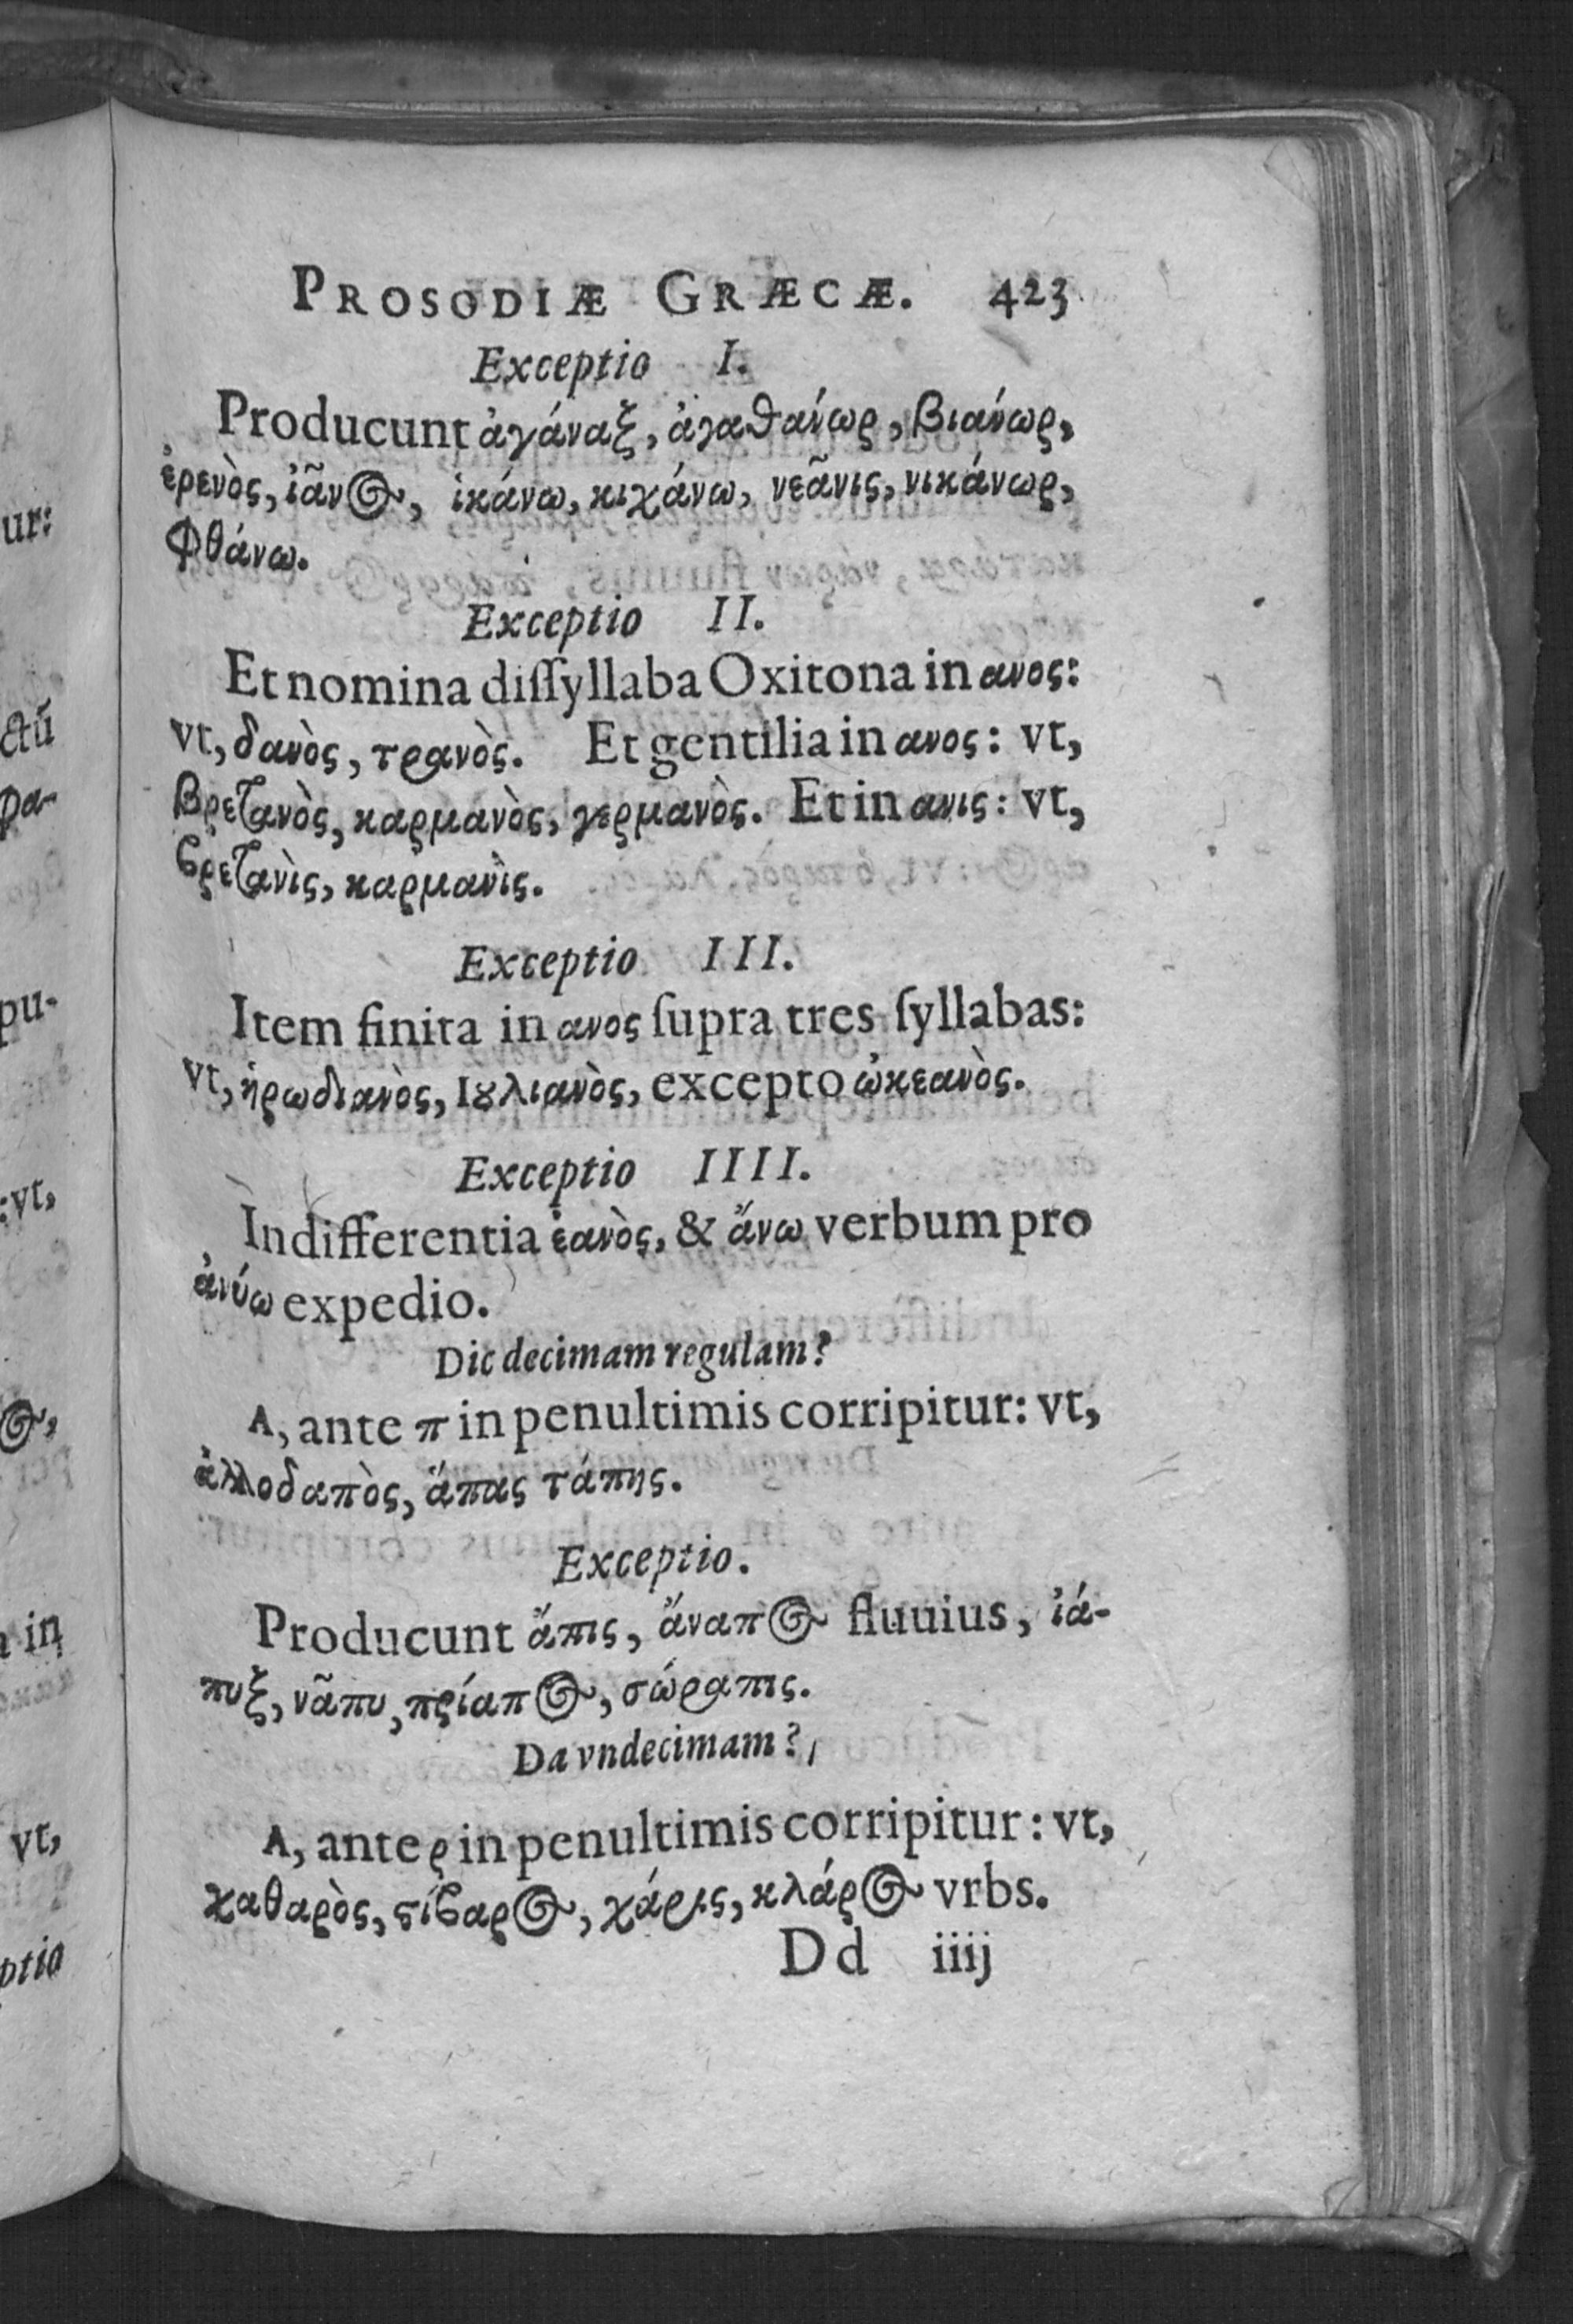 PROSODIÆ GRÆCÆ. 423
Exceptio I.
Producunt ἀγάναξ, ἀγαθάνωρ, βιάνωρ,
ἐρενὸς, ἰᾶνος, ἱκάνω, κιχάνω, νεᾶνις, νικάνωρ,
φθάνω.
Exceptio II.
Et nomina diſſyllaba Oxitona in ανος:
vt, δανὸς, τρανὸς. Et gentilia in ανος: vt,
βρετανὸς, καρμανὸς, γερμανὸς. Et in ανις: vt,
βρετανὶς, καρμανὶς.
Exceptio III.
Item finita in ανος ſupra tres ſyllabas:
vt, ἡρωδιανὸς, Ιȣλιανὸς, excepto ὠκεανὸς.
Exceptio IIII.
Indifferentia ἑανὸς, & ἄνω verbum pro
ἀνύω expedio.
Dic decimam regulam?
Α, ante π in penultimis corripitur: vt,
ἀλλοδαπὸς, ἅπας τάπης.
Exceptio.
Producunt ἄπις, ἄναπος fluuius, ἰά-
πυξ, νᾶπυ, πρίαπος, σώραπις.
Da vndecimam?
Α, ante ρ in penultimis corripitur: vt,
καθαρὸς, στίβαρος, χάρις, κλάρος vrbs.
Dd iiij
ur:
ctũ
ρα-
pu-
: vt,
ος,
in
vt,
ptio